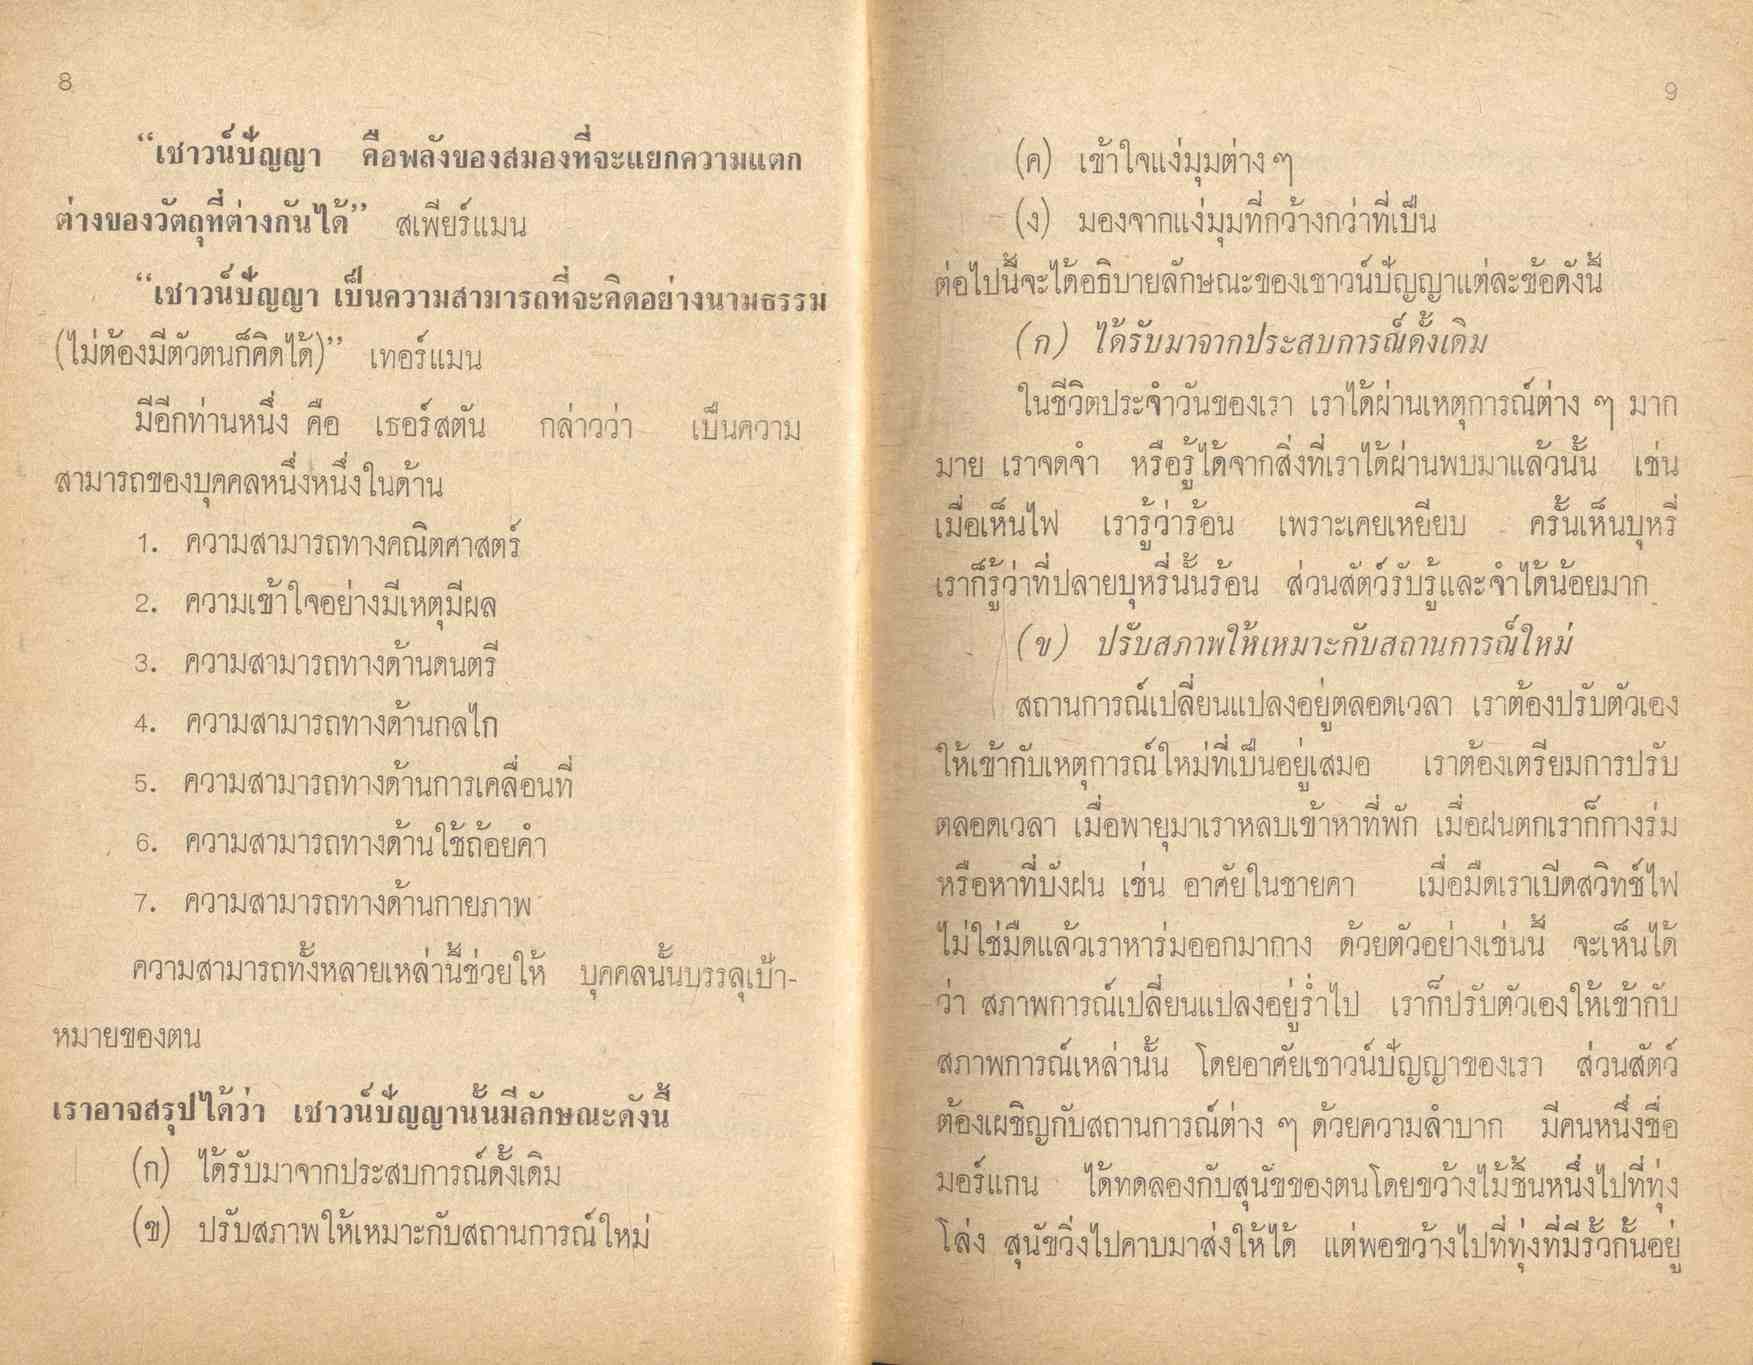 8
“เชาวน์ปัญญา คือพลังของสมองที่จะแยกความแตก
ต่างของวัตถุที่ต่างกันได้” สเพียร์แมน
“เชาวน์ปัญญา เป็นความสามารถที่จะคิดอย่างนามธรรม
(ไม่ต้องมีตัวตนก็คิดได้)” เทอร์แมน
มีอีกท่านหนึ่ง คือ เธอร์สตัน กล่าวว่า เป็นความ
สามารถของบุคคลหนึ่งหนึ่งในด้าน
1. ความสามารถทางคณิตศาสตร์
2. ความเข้าใจอย่างมีเหตุมีผล
3. ความสามารถทางด้านดนตรี
4. ความสามารถทางด้านกลไก
5. ความสามารถทางด้านการเคลื่อนที่
6. ความสามารถทางด้านใช้ถ้อยคำ
7. ความสามารถทางด้านกายภาพ
ความสามารถทั้งหลายเหล่านี้ช่วยให้ บุคคลนั้นบรรลุเป้า-
หมายของตน
เราอาจสรุปได้ว่า เชาวน์ปัญญานั้นมีลักษณะดังนี้
(ก) ได้รับมาจากประสบการณ์ดั้งเดิม
(ข) ปรับสภาพให้เหมาะกับสถานการณ์ใหม่
9
(ค) เข้าใจแง่มุมต่าง ๆ
(ง) มองจากแง่มุมที่กว้างกว่าที่เป็น
ต่อไปนี้จะได้อธิบายลักษณะของเชาวน์ปัญญาแต่ละข้อดังนี้
(ก) ได้รับมาจากประสบการณ์ดั้งเดิม
ในชีวิตประจำวันของเรา เราได้ผ่านเหตุการณ์ต่าง ๆ มาก
มาย เราจดจำ หรือรู้ได้จากสิ่งที่เราได้ผ่านพบมาแล้วนั้น เช่น
เมื่อเห็นไฟ เรารู้ว่าร้อน เพราะเคยเหยียบ ครั้นเห็นบุหรี่
เราก็รู้ว่าที่ปลายบุหรี่นั้นร้อน ส่วนสัตว์รับรู้และจำได้น้อยมาก
(ข) ปรับสภาพให้เหมาะกับสถานการณ์ใหม่
สถานการณ์เปลี่ยนแปลงอยู่ตลอดเวลา เราต้องปรับตัวเอง
ให้เข้ากับเหตุการณ์ใหม่ที่เป็นอยู่เสมอ เราต้องเตรียมการปรับ
ตลอดเวลา เมื่อพายุมาเราหลบเข้าหาที่พัก เมื่อฝนตกเราก็กางร่ม
หรือหาที่บังฝน เช่น อาศัยในชายคา เมื่อมืดเราเปิดสวิทช์ไฟ
ไม่ใช่มืดแล้วเราหาร่มออกมากาง ด้วยตัวอย่างเช่นนี้ จะเห็นได้
ว่า สภาพการณ์เปลี่ยนแปลงอยู่ร่ำไป เราก็ปรับตัวเองให้เข้ากับ
สภาพการณ์เหล่านั้น โดยอาศัยเชาวน์ปัญญาของเรา ส่วนสัตว์
ต้องเผชิญกับสถานการณ์ต่าง ๆ ด้วยความลำบาก มีคนหนึ่งชื่อ
มอร์แกน ได้ทดลองกับสุนัขของตนโดยขว้างไม้ชิ้นหนึ่งไปที่ทุ่ง
โล่ง สุนัขวิ่งไปคาบมาส่งให้ได้ แต่พอขว้างไปที่ทุ่งที่มีรั้วกั้นอยู่